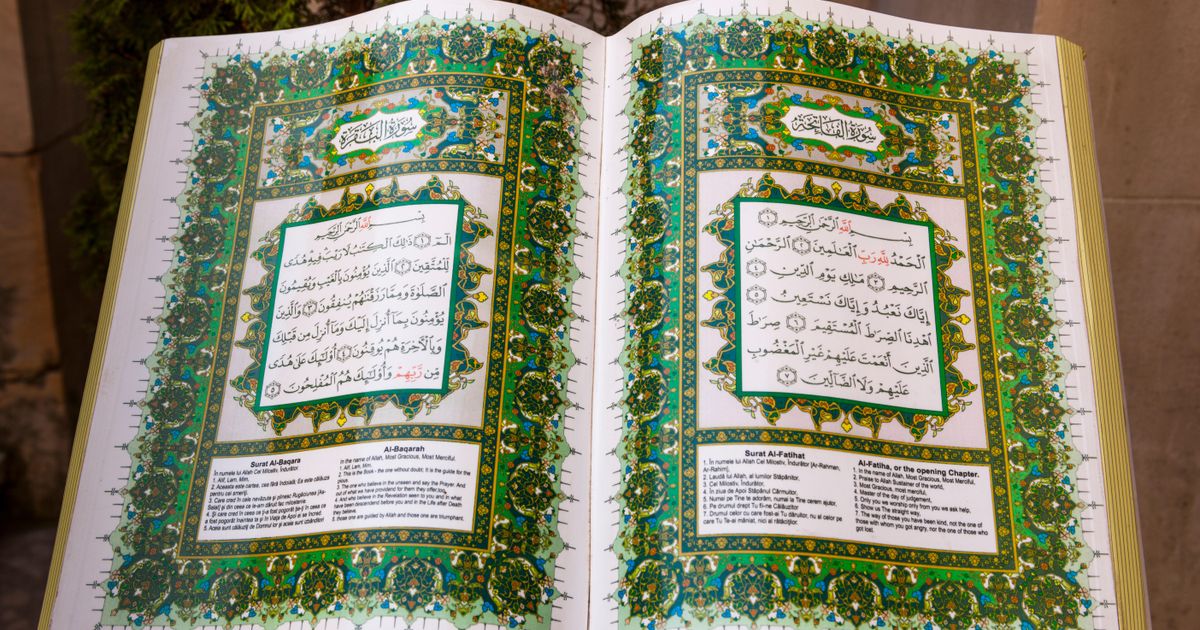 سُورَةُ الفَاتِحَةِ
بِسْمِ ٱللَّهِ ٱلرَّحْمَٰنِ ٱلرَّحِيمِ ١
ٱلْحَمْدُ لِلَّهِ رَبِّ ٱلْعَٰلَمِينَ ٢ ٱلرَّحْمَٰنِ
ٱلرَّحِيمِ ٣ مَٰلِكِ يَوْمِ ٱلدِّينِ ٤
إِيَّاكَ نَعْبُدُ وَإِيَّاكَ نَسْتَعِينُ ٥
ٱهْدِنَا ٱلصِّرَٰطَ ٱلْمُسْتَقِيمَ ٦ صِرَٰطَ
ٱلَّذِينَ أَنْعَمْتَ عَلَيْهِمْ غَيْرِ ٱلْمَغْضُوبِ
عَلَيْهِمْ وَلَا ٱلضَّآلِّينَ ٧
Surat Al-Fatihat
1. În numele lui Allah Cel Milostiv, Îndurător (Ar-Rahman,
Ar-Rahim),
2. Laudă lui Allah, al lumilor Stăpânitor,
3. Cel Milostiv, Îndurător,
4. În ziua de Apoi Stăpânul Cârmuitor,
5. Numai pe Tine te adorăm, numai la Tine cerem ajutor.
6. Pe drumul drept Tu fi-ne Călăuzitor
7. Drumul celor cu care fost-ai Tu dăruitor, nu al celor pe
care Tu Te-ai mâniat, nici al rătăciților.
Al-Fatiha, or the opening Chapter.
1. In the name of Allah, Most Gracious, Most Merciful.
2. Praise to Allah Sustainer of the world,
3. Most Gracious, most merciful.
4. Master of the day of judgement,
5. Only you we worship only from you we ask help.
6. Show us The straight way,
7. The way of those you have been kind, not the one of
those with whom you got angry, nor the one of those who
got lost.
سُورَةُ البَقَرَةِ
بِسْمِ ٱللَّهِ ٱلرَّحْمَٰنِ ٱلرَّحِيمِ
الٓمٓ ١ ذَٰلِكَ ٱلْكِتَٰبُ لَا رَيْبَ فِيهِ هُدًى
لِّلْمُتَّقِينَ ٢ ٱلَّذِينَ يُؤْمِنُونَ بِٱلْغَيْبِ وَيُقِيمُونَ
ٱلصَّلَوٰةَ وَمِمَّا رَزَقْنَٰهُمْ يُنفِقُونَ ٣ وَٱلَّذِينَ
يُؤْمِنُونَ بِمَآ أُنزِلَ إِلَيْكَ وَمَآ أُنزِلَ مِن قَبْلِكَ
وَبِٱلْءَاخِرَةِ هُمْ يُوقِنُونَ ٤ أُو۟لَٰٓئِكَ عَلَىٰ هُدًى
مِّن رَّبِّهِمْ وَأُو۟لَٰٓئِكَ هُمُ ٱلْمُفْلِحُونَ ٥
Surat Al-Baqara
În numele lui Allah Cel Milostiv, Îndurător.
1. Alif, Lam, Mim,
2. Aceasta este cartea, cea fără îndoială, Ea este călăuza
pentru cei smeriți.
3. Care cred în cele nevăzute și plinesc Rugăciunea [As-
Salat] și din ceea ce le-am dăruit fac milostenie.
4. Și care cred în ceea ce ți-a fost pogorât ție-ți în ceea ce
a fost pogorât înaintea ta și în Viața de Apoi ei se încred.
5. Aceia sunt călăuziți de Domnul lor și aceia sunt izbânditori
Al-Baqarah
In the name of Allah, Most Gracious, Most Merciful.
1. Alif, Lam, Mim,
2. This is the Book - the one without doubt; It is the guide for the
pious.
3. The one who believe in the unseen and say the Prayer. And
out of what we have provided for them they offer,
4. And who believe in the Revelation seen to you and in what
have been descendent before you and in the Life after Death
they believe.
5. those one are guided by Allah and those one are triumphant.